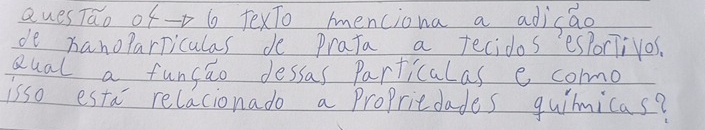 Questão 04 → O Texto menciona a adição
de nanoParTiculas de PraTa a Tecidos esPorTivos.
Qual a função dessas ParTículas e como
isso está relacionado a ProPriedades químicas?